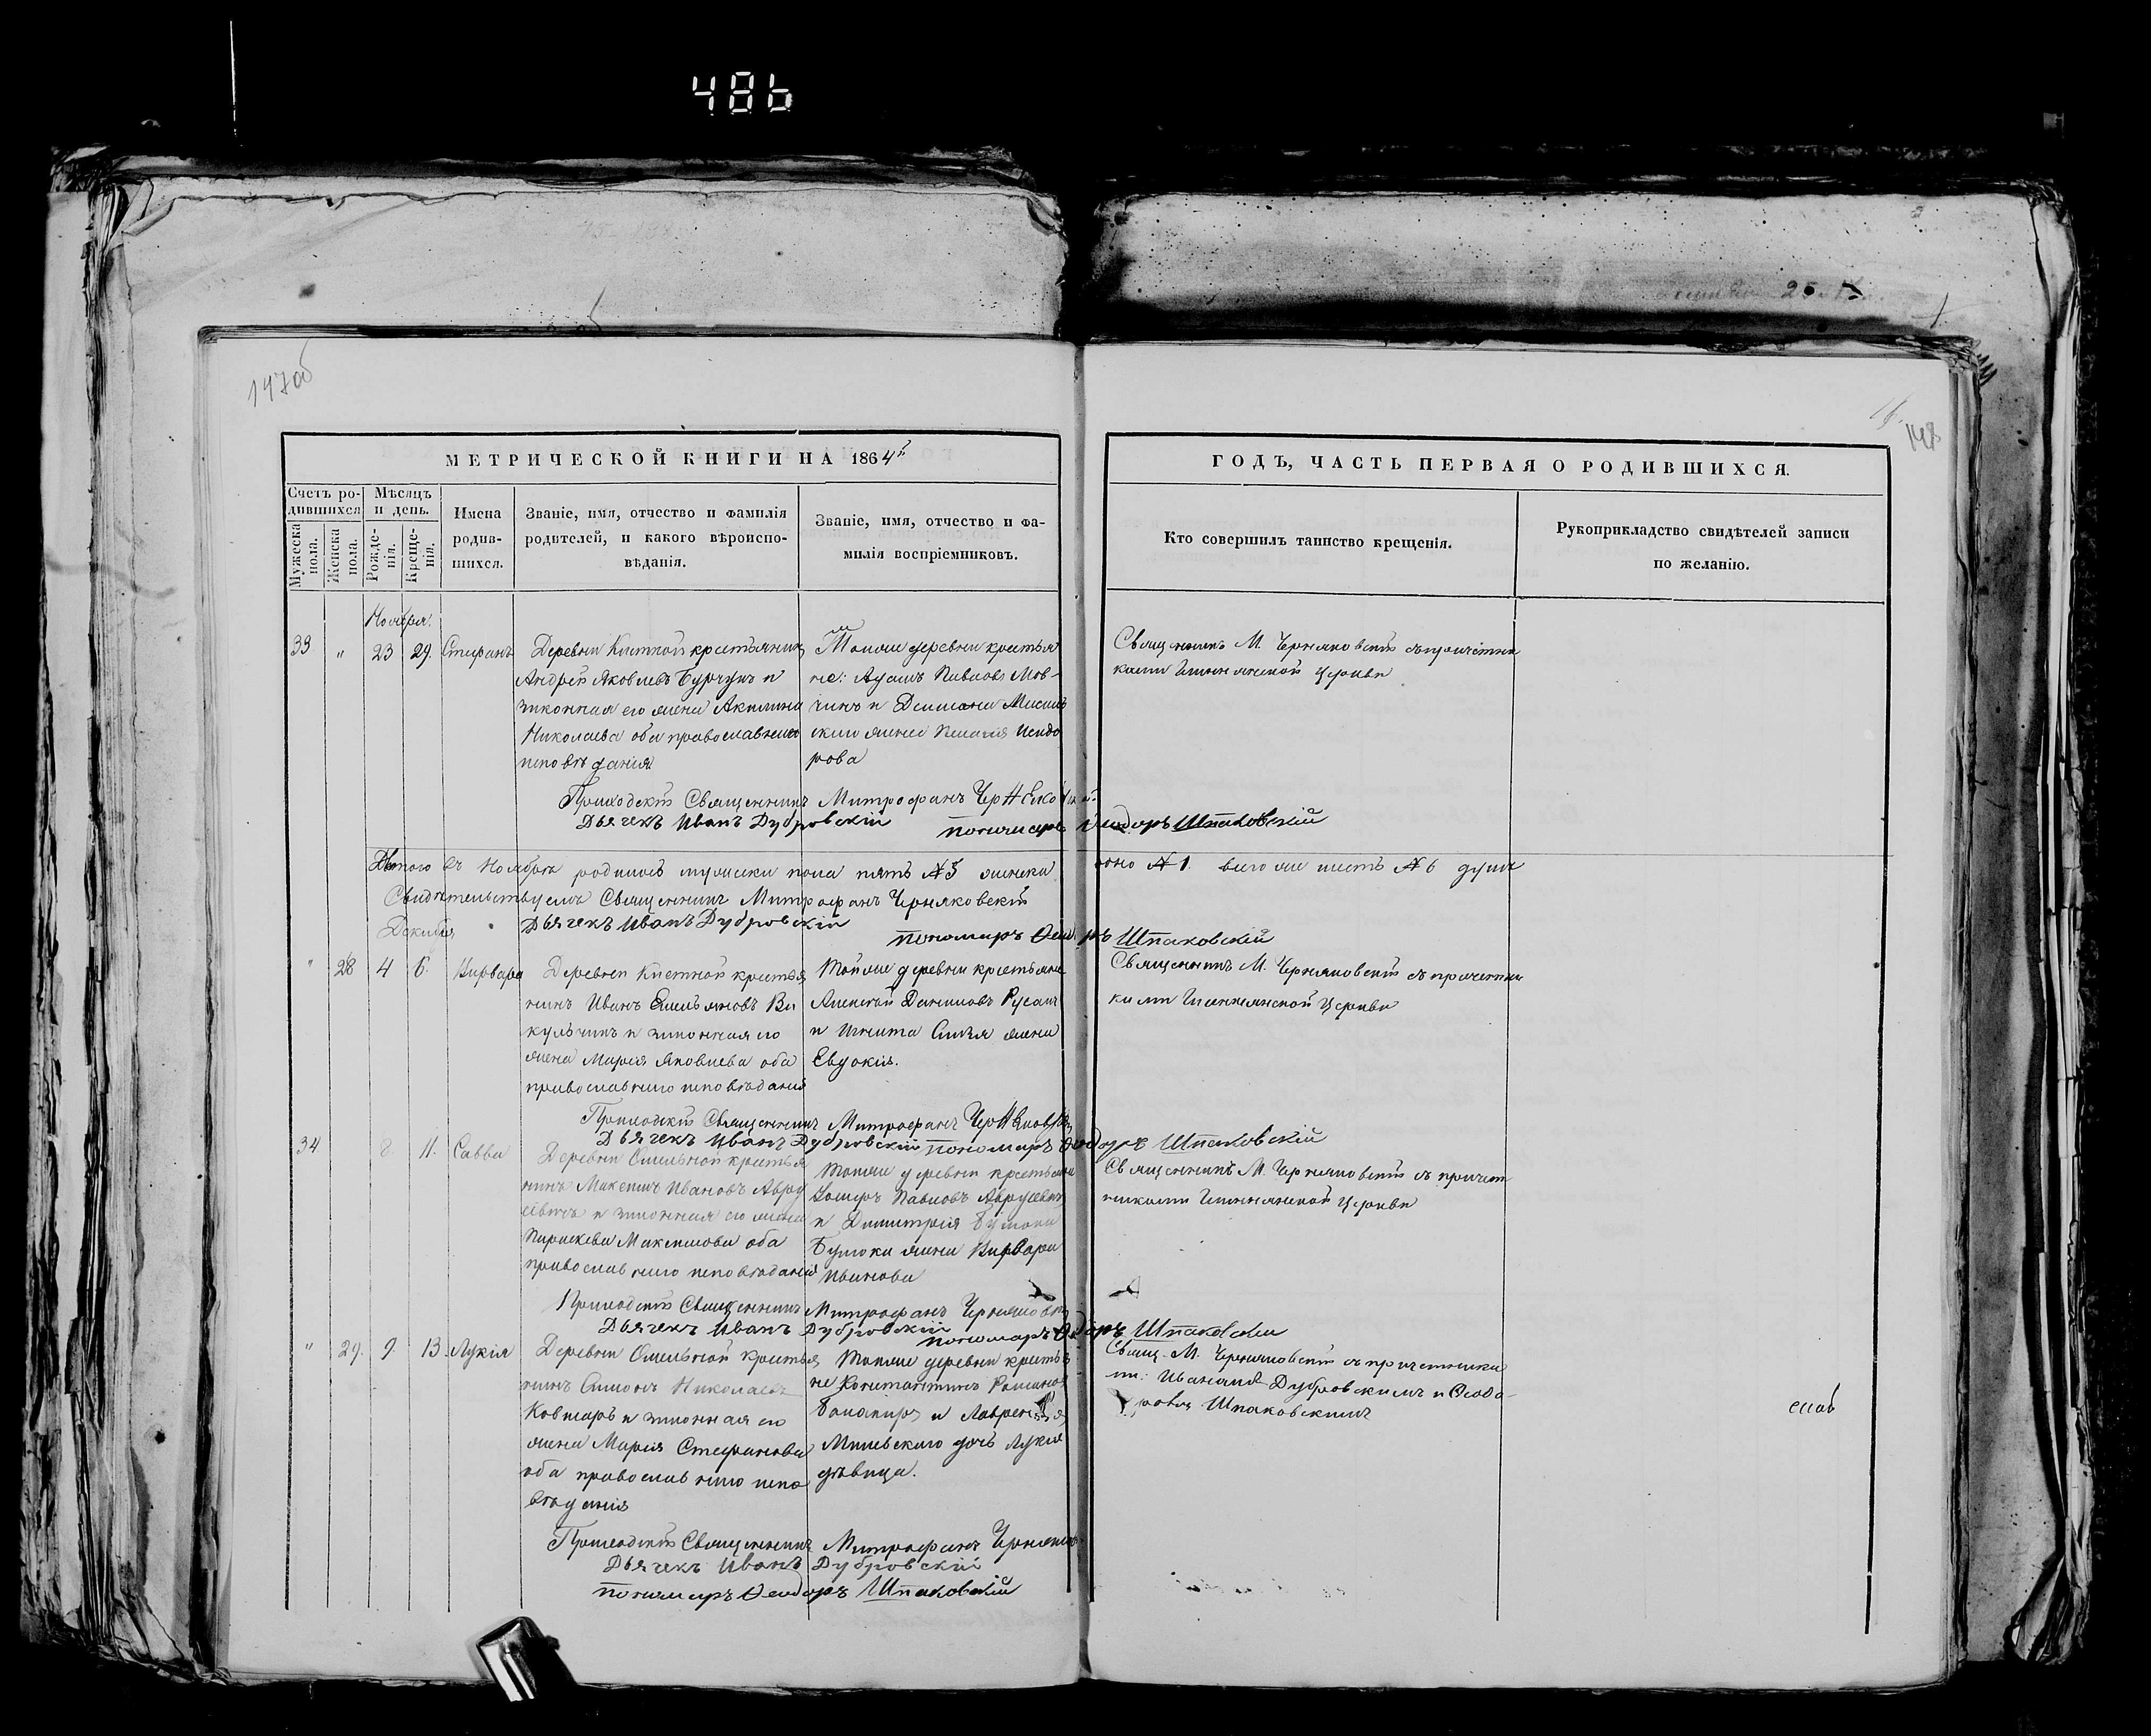 486
147об
148
МЕТРИЧЕСКОЙ КНИГИ НА 1864й
ГОДЪ, ЧАСТЬ ПЕРВАЯ О РОДИВШИХСЯ.
Счетъ ро-
дившихся
Мужеска пола.
Женска пола.
Мѣсяцъ
и день.
Рожде-
нія.
Креще-
нія.
Имена
родив-
шихся.
Званіе, имя, отчество и фамилія
родителей, и какого вѣроиспо-
вѣданія.
Званіе, имя, отчество и фа-
милія воспріемниковъ.
Кто совершилъ таинство крещенія.
Рукоприкладство свидѣтелей записи
по желанію.
Ноября.
33 " 23 29. Стефанъ
Деревни крестьянинъ
Андрей Яковлевъ и
законная его жена Акилина
Николаева оба православнаго
исповѣданія
Тойже деревни крестья
не: Адамъ Павловъ Мов-
чинъ и
жена Пелагія Исидо
рова
Священникъ М. Черняковскій съ причетни
ками церкви
Приходскій Священникъ Митрофанъ
Дьячекъ Иванъ Дубровскій
пономарь Ѳеодоръ Шпаковскій
Итого въ Ноябрѣ родилось мужеска пола пять №5 женска одно №1 всего же шесть №6 душъ
Свидѣтельствуемъ Священникъ Митрофанъ Черняковскій
Дьячекъ Иванъ Дубровскій
пономарь Ѳеодоръ Шпаковскій
Декабря
" 28 4 6. Варвара
Деревни крестья
нинъ Иванъ Емельяновъ Ви
кульчикъ и законная его
жена Марія Яковлева оба
православнаго исповѣданія
Тойже деревни крестьяне
Алексѣй Даниловъ Русакъ
и Игната жена
Евдокія.
Священникъ М. Черняковскій съ причетни
ками церкви
Приходскій Священникъ Митрофанъ
Дьячекъ Иванъ Дубровскій пономарь Ѳеодоръ Шпаковскій
34 8. 11. Савва
Деревни Омельной крестья
нинъ Максимъ Ивановъ Авру
севичъ и законная его жена
Параскева Максимова оба
православнаго исповѣданія
Тойже деревни крестьяне
Павловъ Аврусевичъ
и Димитрія
жена Варвара
Иванова
Священникъ М. Черняковскій съ причет
никами церкви
Приходскій Священникъ Митрофанъ
Дьячекъ Иванъ Дубровскій
пономарь Ѳеодоръ Шпаковскій
" 29. 9. 13. Лукія
Деревни Омельной крестья
нинъ Симонъ Николаевъ
Ковшаръ и законная его
жена Марія Стефанова
оба православнаго испо
вѣданія
Тойже деревни крестья
не Константинъ Романовъ
и Лаврентія
дочь Лукія
дѣвица.
Свящ. М. Черняковскій съ причетника
ми: Иваномъ Дубровскимъ и Ѳеодо-
ромъ Шпаковскимъ
Приходскій Священникъ Митрофанъ
Дьячекъ Иванъ Дубровскій
пономарь Ѳеодоръ Шпаковскій